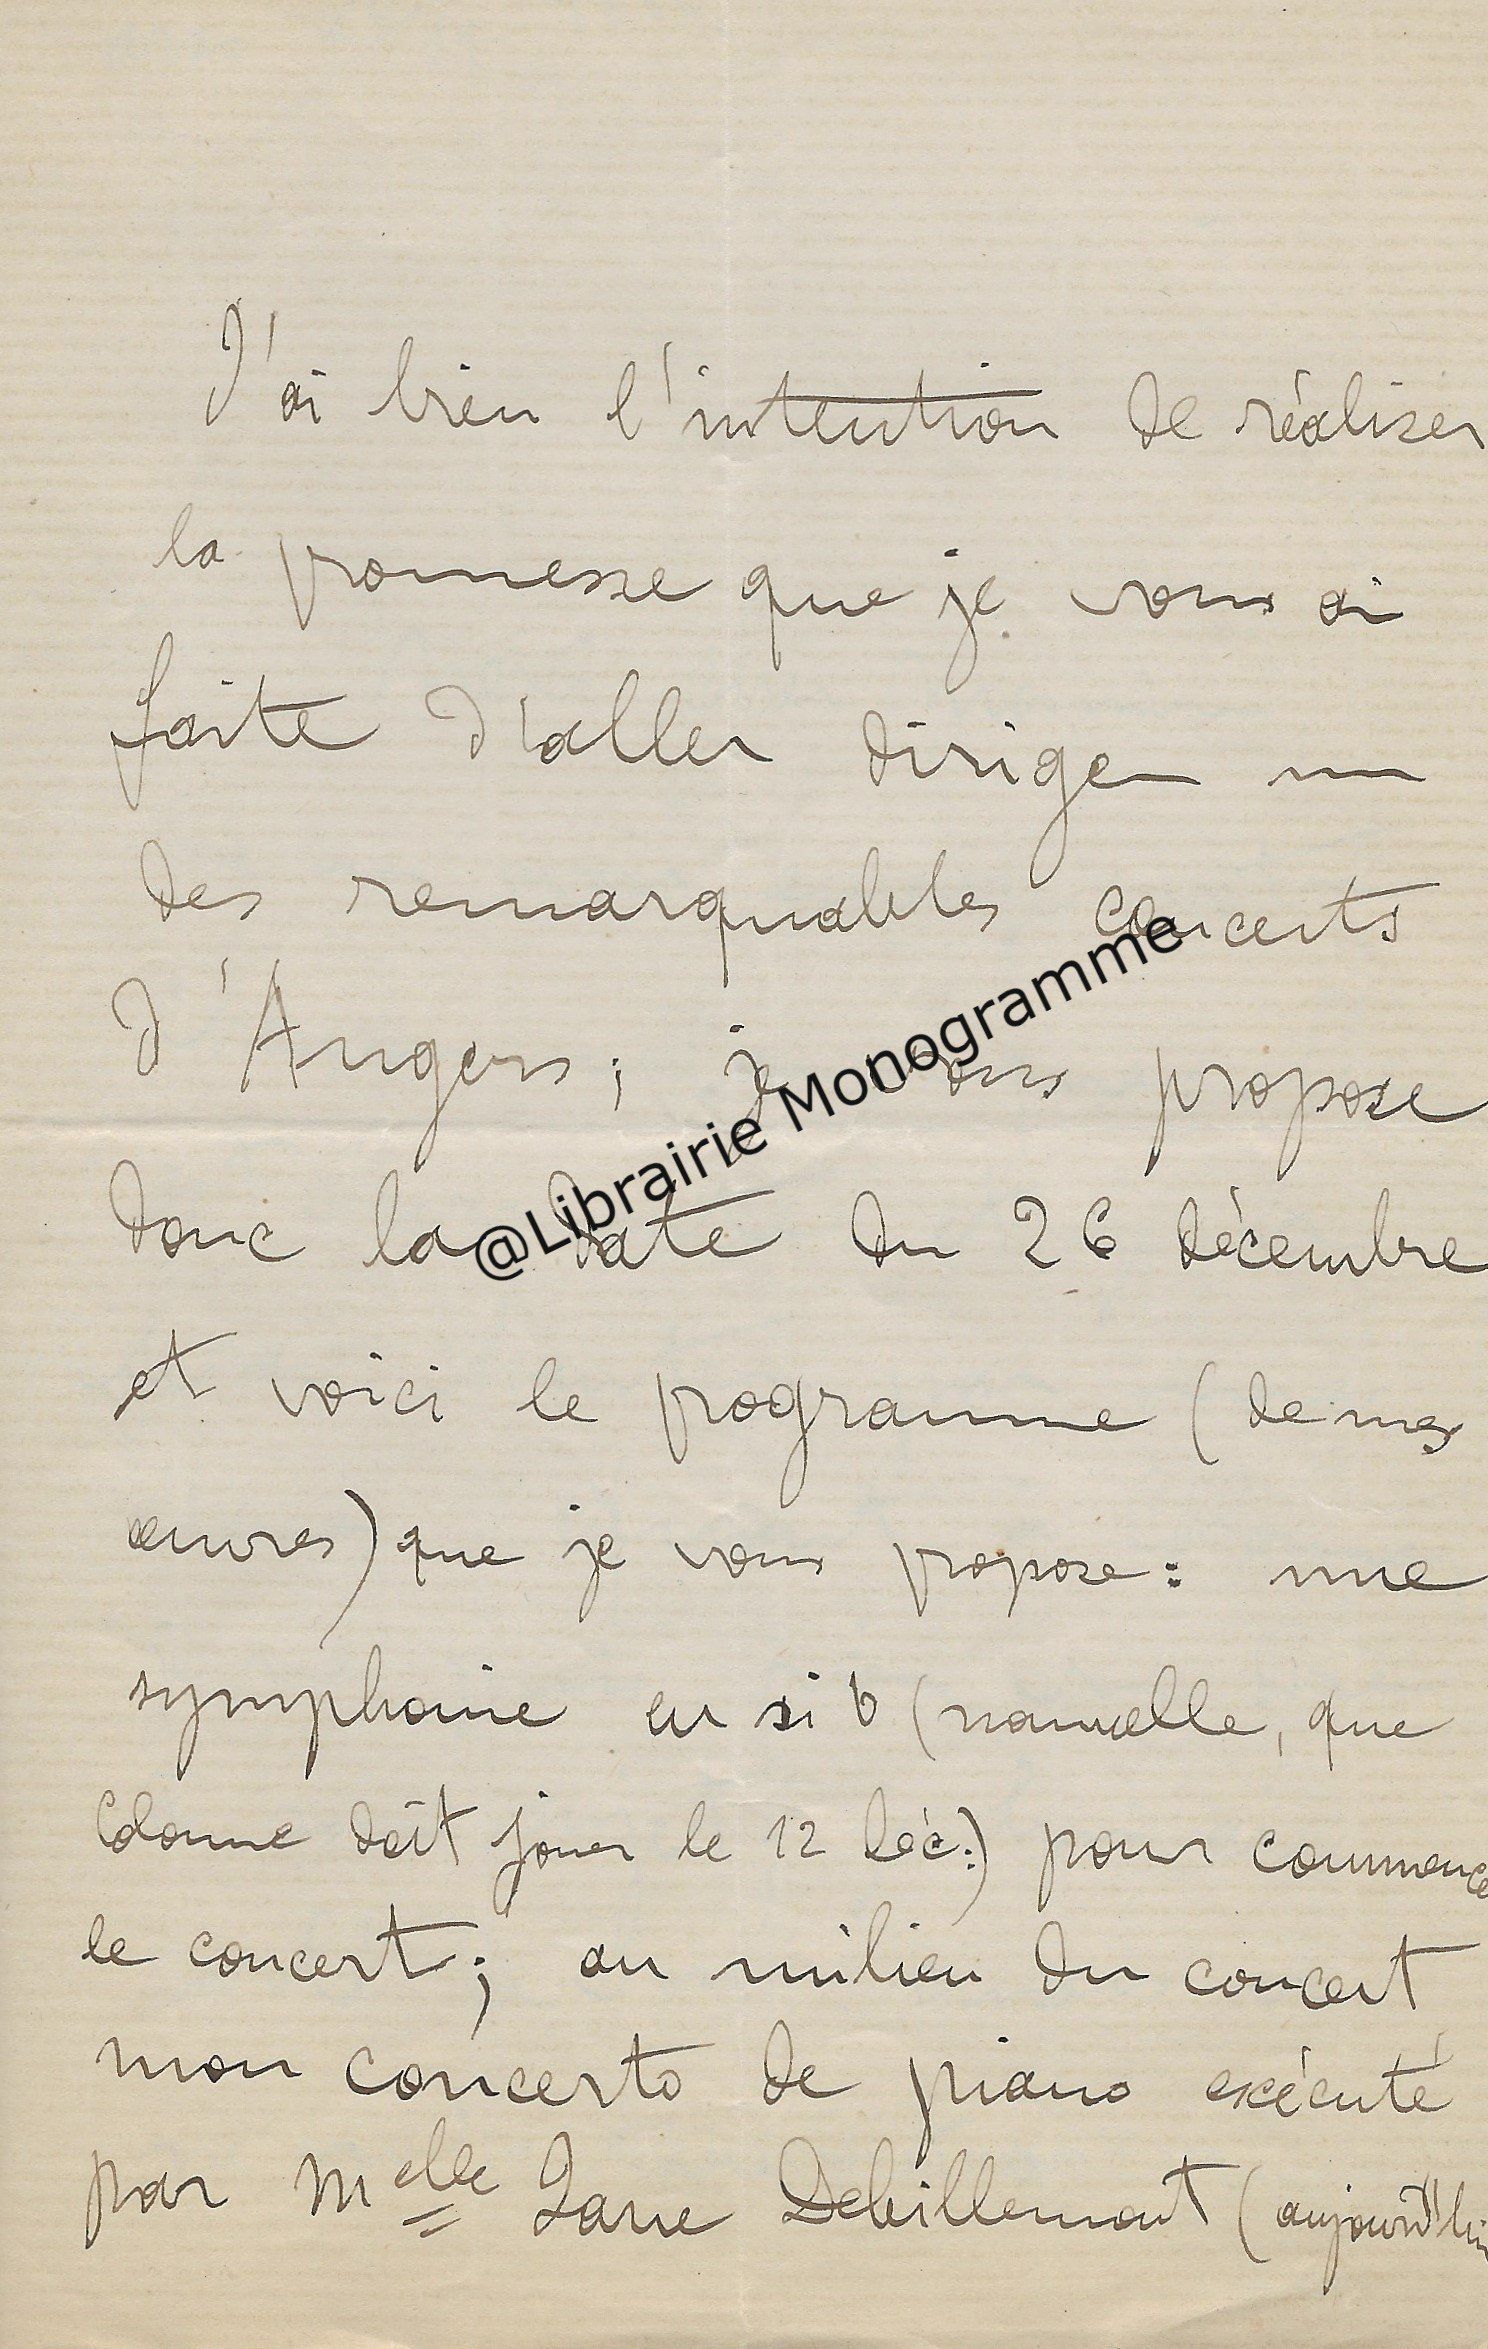 J'ai bien l'intention de réaliser
la promesse que je vous ai
faite d'aller diriger un
des remarquables concerts
d'Angers ; je vous propose
donc la date du 26 décembre
et voici le programme (de mes
œuvres) que je vous propose : une
symphonie en si b (nouvelle, que
Colonne doit jouer le 12 déc:) pour commence
le concert ; au milieu du concert
mon concerto de piano exécuté
par Melle Jane Debillemont (aujourd'hui
@Librairie Monogramme